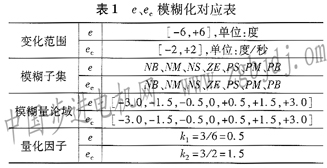 表1 e、ec模糊化对应表
变化范围 e [-6,+6],单位:度
ec [-2,+2],单位:度/秒
模糊子集 e NB,NM,NS,ZE,PS,PM,PB
ec NB,NM,NS,ZE,PS,PM,PB
模糊量论域 e [-3.0,-1.5,-0.5,0,+0.5,+1.5,+3.0]
ec [-3.0,-1.5,-0.5,0,+0.5,+1.5,+3.0]
量化因子 e k1=3/6=0.5
ec k2=3/2=1.5
中国步进电机网